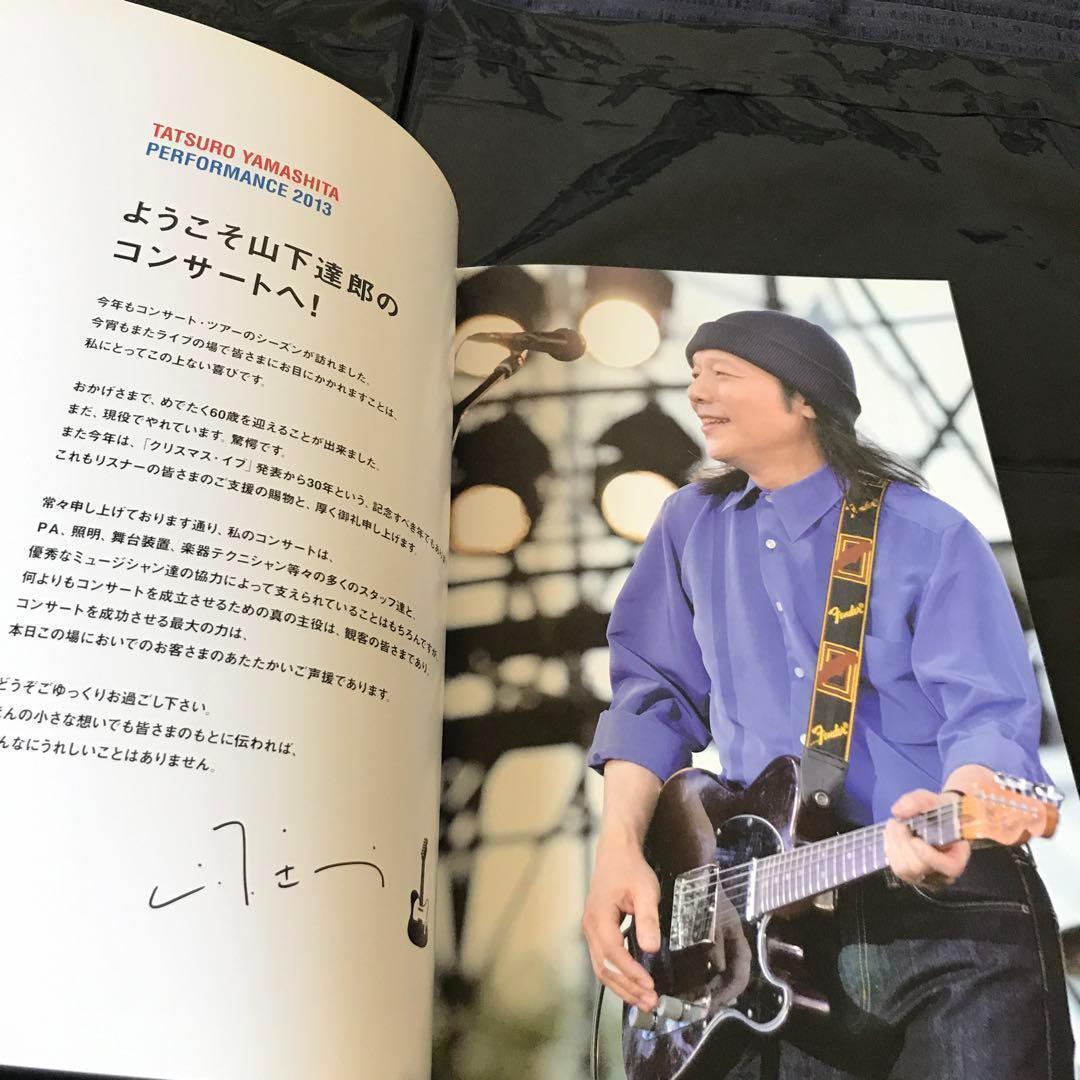 TATSURO YAMASHITA
PERFORMANCE 2013
ようこそ山下達郎の
コンサートへ！
今年もコンサート・ツアーのシーズンが訪れました。
今宵もまたライブの場で皆さまにお目にかかれますことは、
私にとってこの上ない喜びです。
おかげさまで、めでたく60歳を迎えることが出来ました。
まだ、現役でやれています。驚愕です。
また今年は、「クリスマス・イブ」発表から30年という、記念すべき年でもあり
これもリスナーの皆さまのご支援の賜物と、厚く御礼申し上げます。
常々申し上げております通り、私のコンサートは、
PA、照明、舞台装置、楽器テクニシャン等々の多くのスタッフ達と、
優秀なミュージシャン達の協力によって支えられていることはもちろんですが、
何よりもコンサートを成立させるための真の主役は、観客の皆さまであり、
コンサートを成功させる最大の力は、
本日この場においでのお客さまのあたたかいご声援であります。
どうぞごゆっくりお過ごし下さい。
んの小さな想いでも皆さまのもとに伝われば、
んなにうれしいことはありません。
Fender
Fender